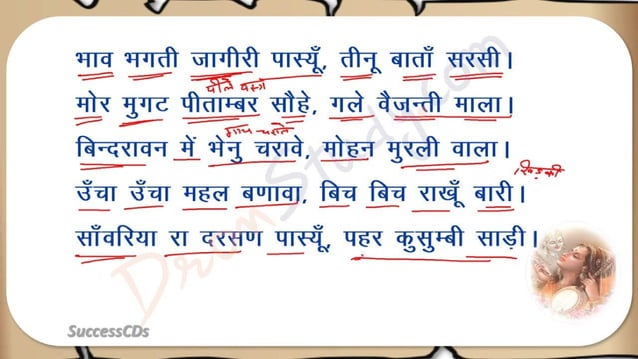 भाव भगती जागीरी पास्यूँ, तीनू बाताँ सरसी।
पीले वस्त्र
मोर मुगट पीताम्बर सौहे, गले वैजन्ती माला।
गाय चराते
बिन्दरावन में भेनु चरावे, मोहन मुरली वाला।
खिड़की
उँचा उँचा महल बणावा, बिच बिच राखूँ बारी।
साँवरिया रा दरसण पास्यूँ, पहर कुसुम्बी साड़ी।
DronStudy.com
SuccessCDs